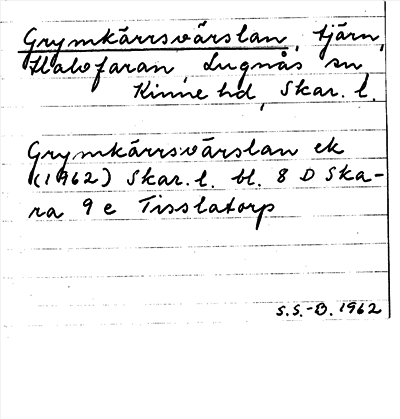 Grymkärrsvärslan, tjärn,
Halvfaran, Lugnås sn
Kinne hd, Skar. l.
Grymkärrsvärslan ek
(1962) Skar. l. bl. 8 D Ska-
ra 9 e Tisslatorp
S.S.-B. 1962